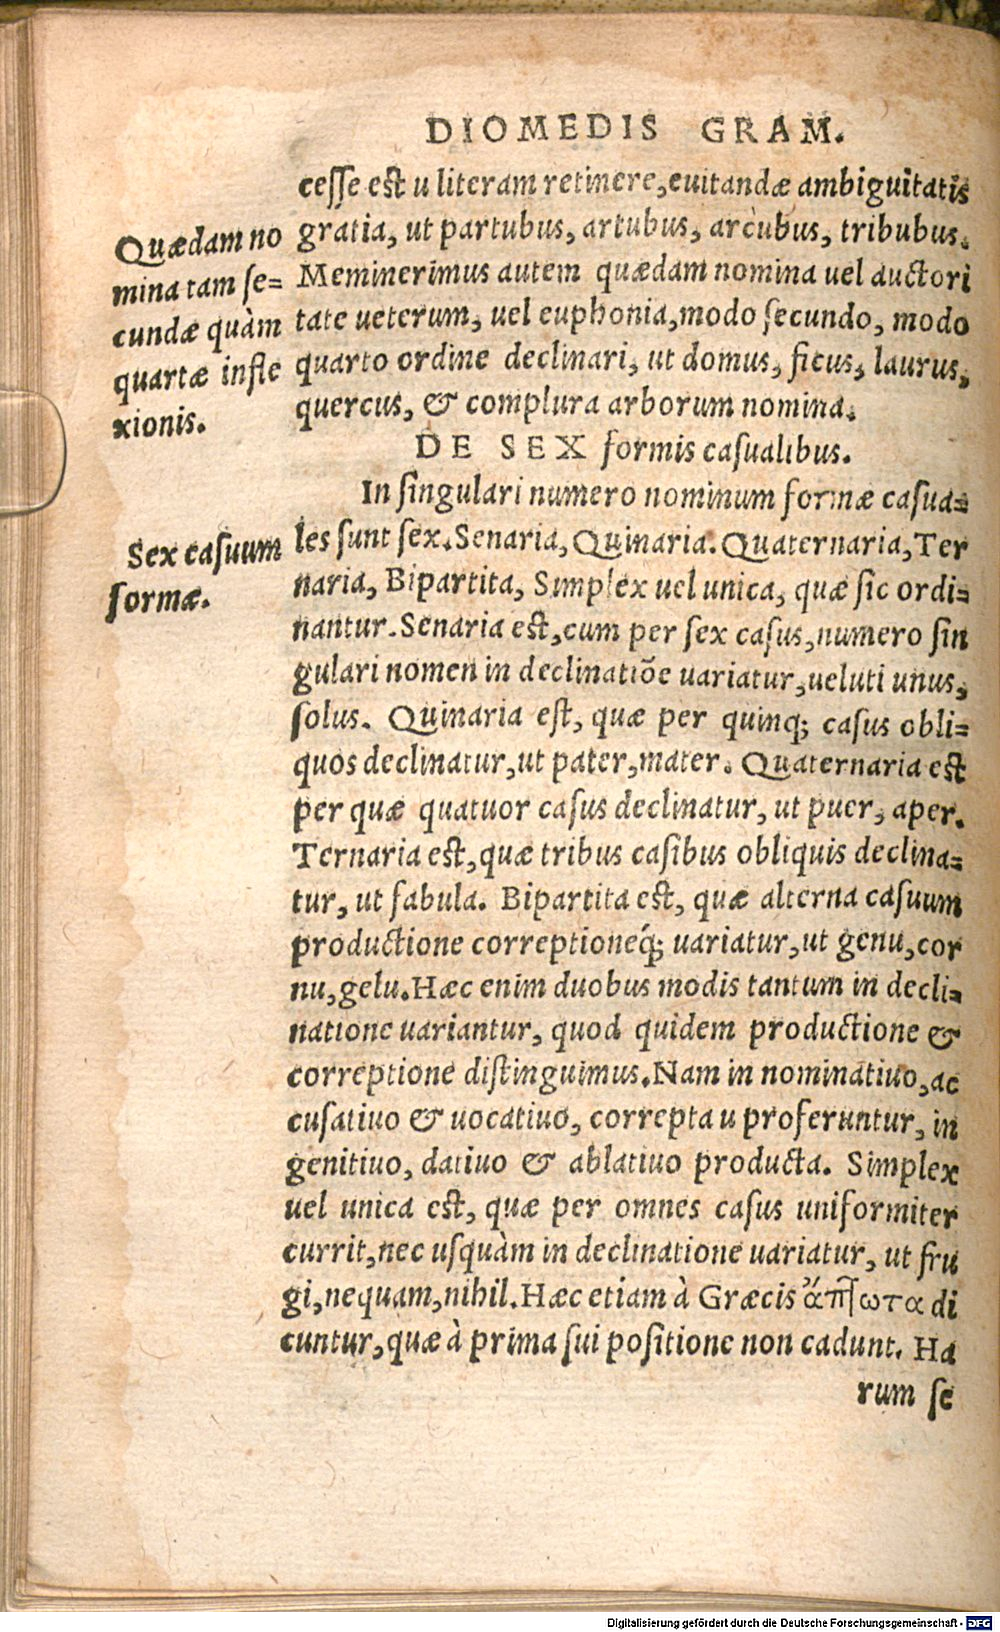 DIOMEDIS GRAM.
cesse est u literam retinere, euitandæ ambiguitatis
gratia, ut partubus, artubus, arcubus, tribubus.
Meminerimus autem quædam nomina uel auctori
tate ueterum, uel euphonia, modo secundo, modo
quarto ordine declinari, ut domus, ficus, laurus,
quercus, & complura arborum nomina.
Quædam no
mina tam se=
cundæ quàm
quartæ infle
xionis.
DE SEX formis casualibus.
In singulari numero nominum formæ casua=
les sunt sex. Senaria, Quinaria. Quaternaria, Ter
naria, Bipartita, Simplex uel unica, quæ sic ordi=
nantur. Senaria est, cum per sex casus, numero sin
gulari nomen in declinatiōe uariatur, ueluti unus,
solus. Quinaria est, quæ per quinq; casus obli=
quos declinatur, ut pater, mater. Quaternaria est
per quæ quatuor casus declinatur, ut puer, aper.
Ternaria est, quæ tribus casibus obliquis declina=
tur, ut fabula. Bipartita est, quæ alterna casuum
productione correptioneq́; uariatur, ut genu, cor
nu, gelu. Hæc enim duobus modis tantum in decli=
natione uariantur, quod quidem productione &
correptione distinguimus. Nam in nominatiuo, ac
cusatiuo & uocatiuo, correpta u proferuntur, in
genitiuo, datiuo & ablatiuo producta. Simplex
uel unica est, quæ per omnes casus uniformiter
currit, nec usquàm in declinatione uariatur, ut fru
gi, nequam, nihil. Hæc etiam à Græcis ἄπτωτα di
cuntur, quæ à prima sui positione non cadunt. Ha
rum se
Sex casuum
formæ.
Digitalisierung gefördert durch die Deutsche Forschungsgemeinschaft - DFG